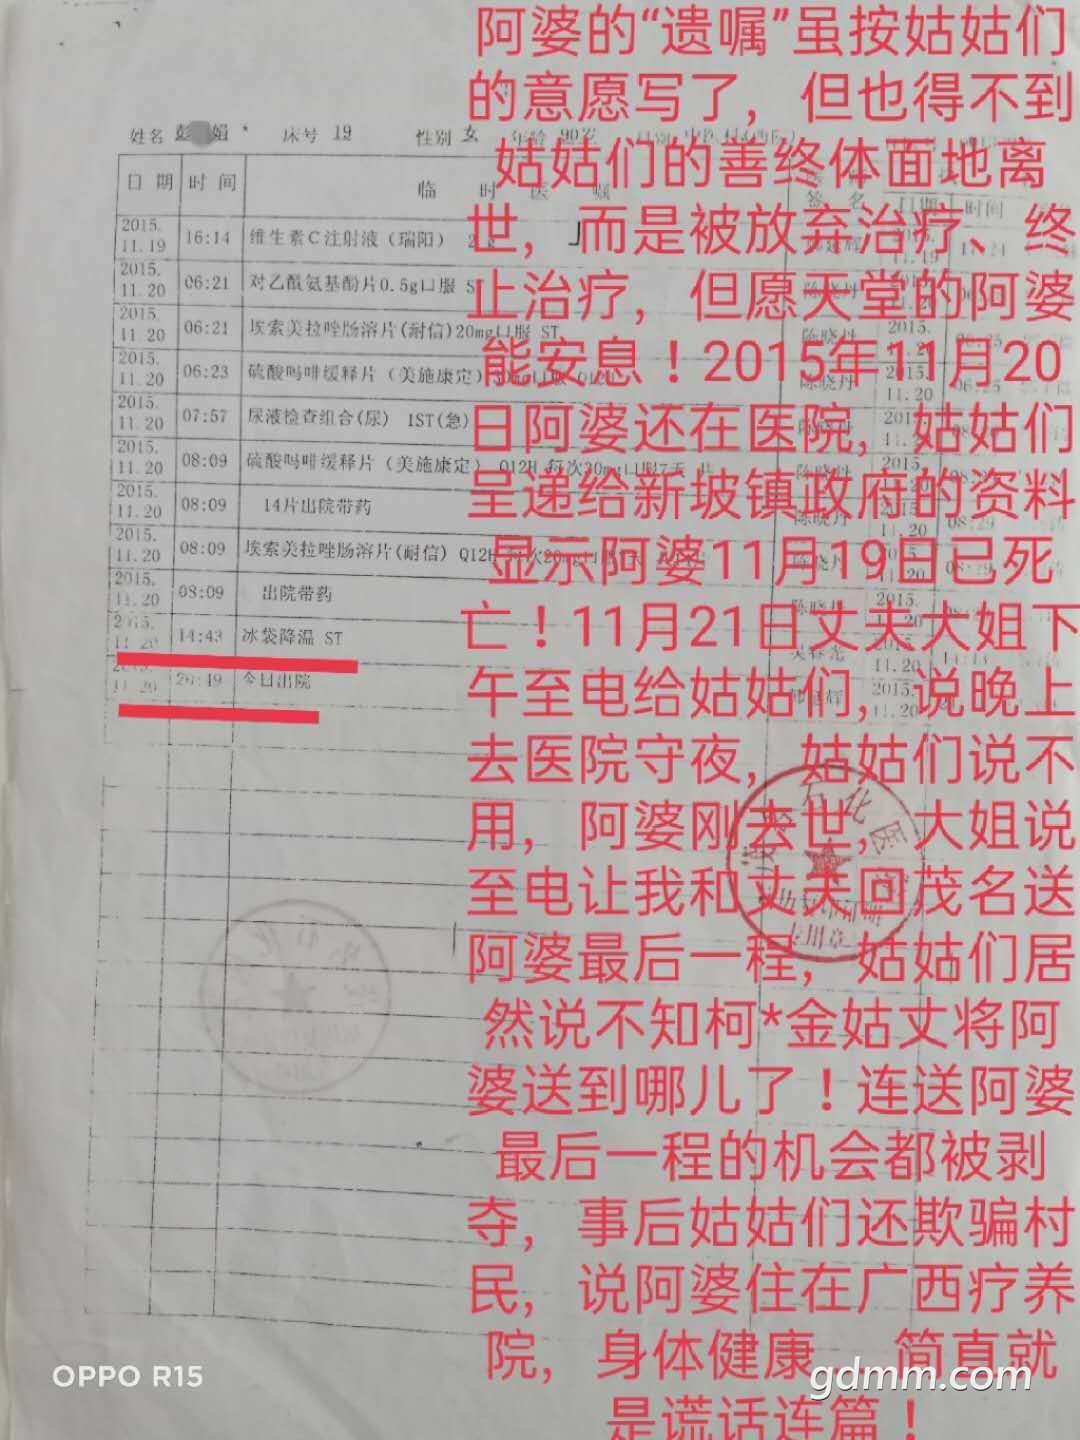 阿婆的“遗嘱”虽按姑姑们
的意愿写了，但也得不到
姑姑们的善终体面地离
世，而是被放弃治疗、终
止治疗，但愿天堂的阿婆
能安息！2015年11月20
日阿婆还在医院，姑姑们
呈递给新坡镇政府的资料
显示阿婆11月19日已死
亡！11月21日丈夫大姐下
午至电给姑姑们，说晚上
去医院守夜，姑姑们说不
用，阿婆刚去世，大姐说
至电让我和丈夫回茂名送
阿婆最后一程，姑姑们居
然说不知柯*金姑丈将阿
婆送到哪儿了！连送阿婆
最后一程的机会都被剥
夺，事后姑姑们还欺骗村
民，说阿婆住在广西疗养
院，身体健康
简直就
是谎话连篇！
姓名 彭 娟 床号 19 性别 女 年龄 90岁
日期 时间 临时医嘱 签名 日期 时间
2015.11.19 16:14 维生素C注射液（瑞阳） 2g 2015.11.19
2015.11.20 06:21 对乙酰氨基酚片0.5g口服 ST 陈晓丹 2015.11.20
2015.11.20 06:21 埃索美拉唑肠溶片(耐信)20mg口服 ST 陈晓丹 2015.11.20 06:25
2015.11.20 06:23 硫酸吗啡缓释片（美施康定）30mg口服 Q12H 陈晓丹 2015.11.20 06:25
2015.11.20 07:57 尿液检查组合(尿) 1ST(急) 陈晓丹 2015.11.20
2015.11.20 08:09 硫酸吗啡缓释片（美施康定） Q12H 每次30mg口服7天 共 陈晓丹 2015.11.20 08:29
2015.11.20 08:09 14片出院带药 陈晓丹 2015.11.20 08:29
2015.11.20 08:09 埃索美拉唑肠溶片(耐信) Q12H 每次20mg口服 陈晓丹 2015.11.20 08:29
2015.11.20 08:09 出院带药 陈晓丹 2015.11.20
2015.11.20 14:43 冰袋降温 ST 吴春光 2015.11.20
11.20 20:49 今日出院 辉 2015.11.20
石化医
专用章
OPPO R15
gdmm.com